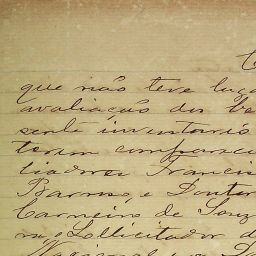 que não teve luga
avaliação dos be
sente inventario
teram comparec
liadores Francis
Barroso, e Doutor
Carneiro de Souz
no e Sollicitador d
Nacional